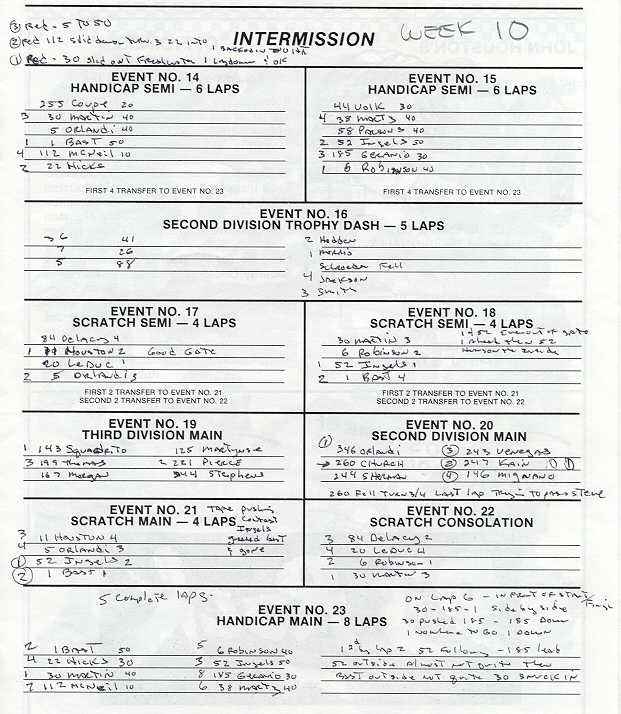 ③ Red - 5 to 50
② Red 112 slid down turn. 3 22 into
① Red - 30 slid out 1 laydown OK
INTERMISSION
WEEK 10
EVENT NO. 14
HANDICAP SEMI — 6 LAPS
255 Coupe 20
3 30 MARTIN 40
5 ORLANDI 40
1 1 BAST 50
4 112 McNeil 10
2 22 Hicks
FIRST 4 TRANSFER TO EVENT NO. 23
EVENT NO. 15
HANDICAP SEMI — 6 LAPS
44 Volk 30
4 38 MARTZ 40
58 Parsons 40
2 52 Ingels 50
3 185 Geranio 30
1 6 Robinson 40
FIRST 4 TRANSFER TO EVENT NO. 23
EVENT NO. 16
SECOND DIVISION TROPHY DASH — 5 LAPS
6 41
7 26
5 88
2 Hedden
1
Schroeder Fell
4 Jackson
3 Smith
EVENT NO. 17
SCRATCH SEMI — 4 LAPS
84 Delacy 4
1 11 Houston 2 Good Gate
20 LeDuc 1
2 5 Orlandi 3
FIRST 2 TRANSFER TO EVENT NO. 21
SECOND 2 TRANSFER TO EVENT NO. 22
EVENT NO. 18
SCRATCH SEMI — 4 LAPS
1 & 52 Even out of gate
1 then 52
inside
30 MARTIN 3
6 Robinson 2
1 52 Ingels 1
2 1 Bast 4
FIRST 2 TRANSFER TO EVENT NO. 21
SECOND 2 TRANSFER TO EVENT NO. 22
EVENT NO. 19
THIRD DIVISION MAIN
1 143 Squadrito 125 Martynse
3 199 Thomas 2 221 Pierce
167 Morgan 344 Stephens
EVENT NO. 20
SECOND DIVISION MAIN
① 346 Orlandi ③ 243 Venegas
260 CHURCH ② 247 KAIN
244 Sherman ④ 146 MIGNANO
260 Fell turn 3/4 Last lap Tryin to pass Steve
EVENT NO. 21
SCRATCH MAIN — 4 LAPS
Tape pushing
Contest
Ingels
& gone
3 11 Houston 4
4 5 Orlandi 3
① 52 Ingels 2
② 1 Bast 1
EVENT NO. 22
SCRATCH CONSOLATION
3 84 Delacy 2
4 20 LeDuc 4
2 6 Robinson 1
1 30 Martin 3
5 Complete laps.
EVENT NO. 23
HANDICAP MAIN — 8 LAPS
ON Lap 6 - IN FRONT OF START/
30 - 185 - 1 Side by side
30 pushed 185 - 185 Down
1 Nowhere to GO 1 DOWN
2 1 BAST 50 5 6 Robinson 40
4 22 Hicks 30 3 52 Ingels 50
1 30 MARTIN 40 8 185 Geranio 30
7 112 McNeil 10 6 38 MARTZ 40
by lap 2 52 Following - 185 lead
52 outside Almost not quite then
BAST outside not quite 30 SNUCK IN